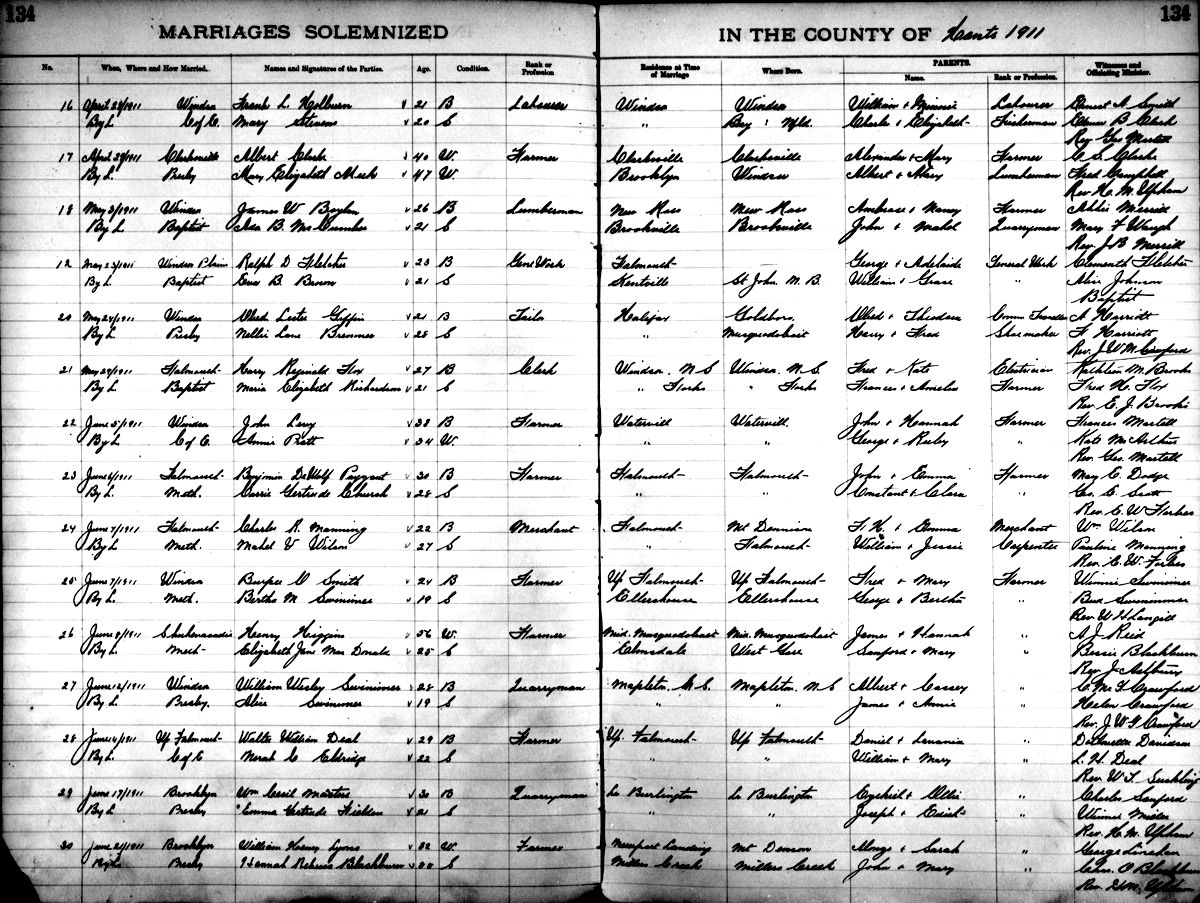 134 134
MARRIAGES SOLEMNIZED IN THE COUNTY OF Hants 1911
No. When, Where and How Married. Names and Signatures of the Parties. Age. Condition. Rank or Profession Residence at Time of Marriage Where Born. PARENTS. Name. Rank or Profession. Witnesses and Officiating Minister.
16 April 28/1911 Windsor Frank L. 21 B Labourer Windsor Windsor William & Minnie Labourer Ernest A.
By L C of E. Mary Stevens 20 S " Bay Nfld. Charles & Elizabeth Fisherman B Clark
Rev Geo Martell
17 April 29/1911 Clarksville Albert Clark 40 W. Farmer Clarksville Clarksville Alexander & Mary Farmer C. S. Clarke
By L. Presby Mary Elizabeth Meek 47 W Brooklyn Windsor Albert & Mary Lumberman Fred Campbell
Rev H. M. Upham
18 May 3/1911 Windsor James W 26 B Lumberman New Ross New Ross Ambrose & Nancy Farmer Addie Merrill
By L Baptist Ada B. McCumber 21 S Brookville Brookville John & Mabel Quarryman Mary F Waugh
Rev. J B Merrill
May 23/1911 Windsor Plains Ralph D Fletcher 23 B Genl Work Falmouth George & Adelaide General Work Clement Fletcher
By L Baptist Eva B. Brown 21 S Kentville St John N. B. William & Grace " Alice Johnson
Baptist
20 May 24/1911 Windsor Giffin 21 B Tailor Halifax Goldboro & Theodora A Harriott
By L Presby Nellie Lane 28 S " Musquodoboit Harry & Shoemaker F Harriott
Rev. J W M Crawford
21 May 29/1911 Falmouth Harry Reginald Fox 27 B Clerk Windsor. N S Windsor. N. S Fred & Kate Electrician Kathleen M. Brooks
By L Baptist Maria Elizabeth Richardson 21 S " Forks " Forks Francis & Amelia Farmer Fred H. Fox
Rev. E. J. Brooks
22 June 5/1911 Windsor John Levy 38 B Farmer Waterville Waterville John & Hannah Farmer Frances Martell
By L C of E Annie Pratt 34 W. " " George & Ruby " Kate McArthur
Rev. Geo. Martell
23 June 6/1911 Falmouth Benjamin DeWolf Payzant 30 B Farmer Falmouth Falmouth John & Emma Farmer May C. Dodge
By L. Meth. Carrie Gertrude Church 28 S " " Constant & Clara Geo. E Scott
Rev. C. W Forbes
24 June 7/1911 Falmouth Charles R. Manning 22 B Merchant Falmouth Mt Dennison F. H. & Emma Merchant Wm Wilson
By L Meth. Mabel V Wilson 27 S " Falmouth William & Jessie Carpenter Pauline Manning
Rev. C. W. Forbes
25 June 7/1911 Windsor Burpee O Smith 21 B Farmer Up Falmouth Up Falmouth Fred & Mary Farmer Winnie Swinimer
By L. Meth. Bertha M Swinimer 19 S Ellershouse Ellershouse George & Bertha " Bud Swinimer
Rev. W H Langill
26 June 8/1911 Shubenacadie Henry Higgins 56 W. Farmer Mid. Musquodoboit Mid. Musquodoboit James & Hannah " A J Reid
By L. Meth Elizabeth Jane MacDonald 25 S Elmsdale West Gore Sanford & Mary " Bessie Blackburn
Rev. J Astbury
27 June 12/1911 Windsor William Wesley Swinimer 28 B Quarryman Mapleton. N. S. Mapleton. N S Albert & Cassey " C. Mc F Crawford
By L. Presby. Alice Swinimer 19 S " " James & Annie " Helen Crawford
Rev. J. W. F Crawford
28 June 14/1911 Up Falmouth Walter William Deal 29 B Farmer Up. Falmouth Up Falmouth Daniel & Lavania " Davidson
By L. C of E Norah C Eldridge 22 S " " William & Mary L. H. Deal
Rev. W. T. Suckling
29 June 17/1911 Brooklyn Wm Cecil Masters 30 B Quarryman Lr Burlington Lr Burlington Ezekiel & Ellie " Charles Sanford
By L Presby Emma Gertrude 21 S " " Joseph & Edith "
Rev. H. M. Upham
30 June 21/1911 Brooklyn William Henry Lyons 32 W. Farmer Newport Landing Mt Denson Alonzo & Sarah " George Lunham
By L Presby Hannah Rebecca Blackburn S Millers Creek Millers Creek John & Mary " Chas. O Blackburn
Rev. H M. Upham